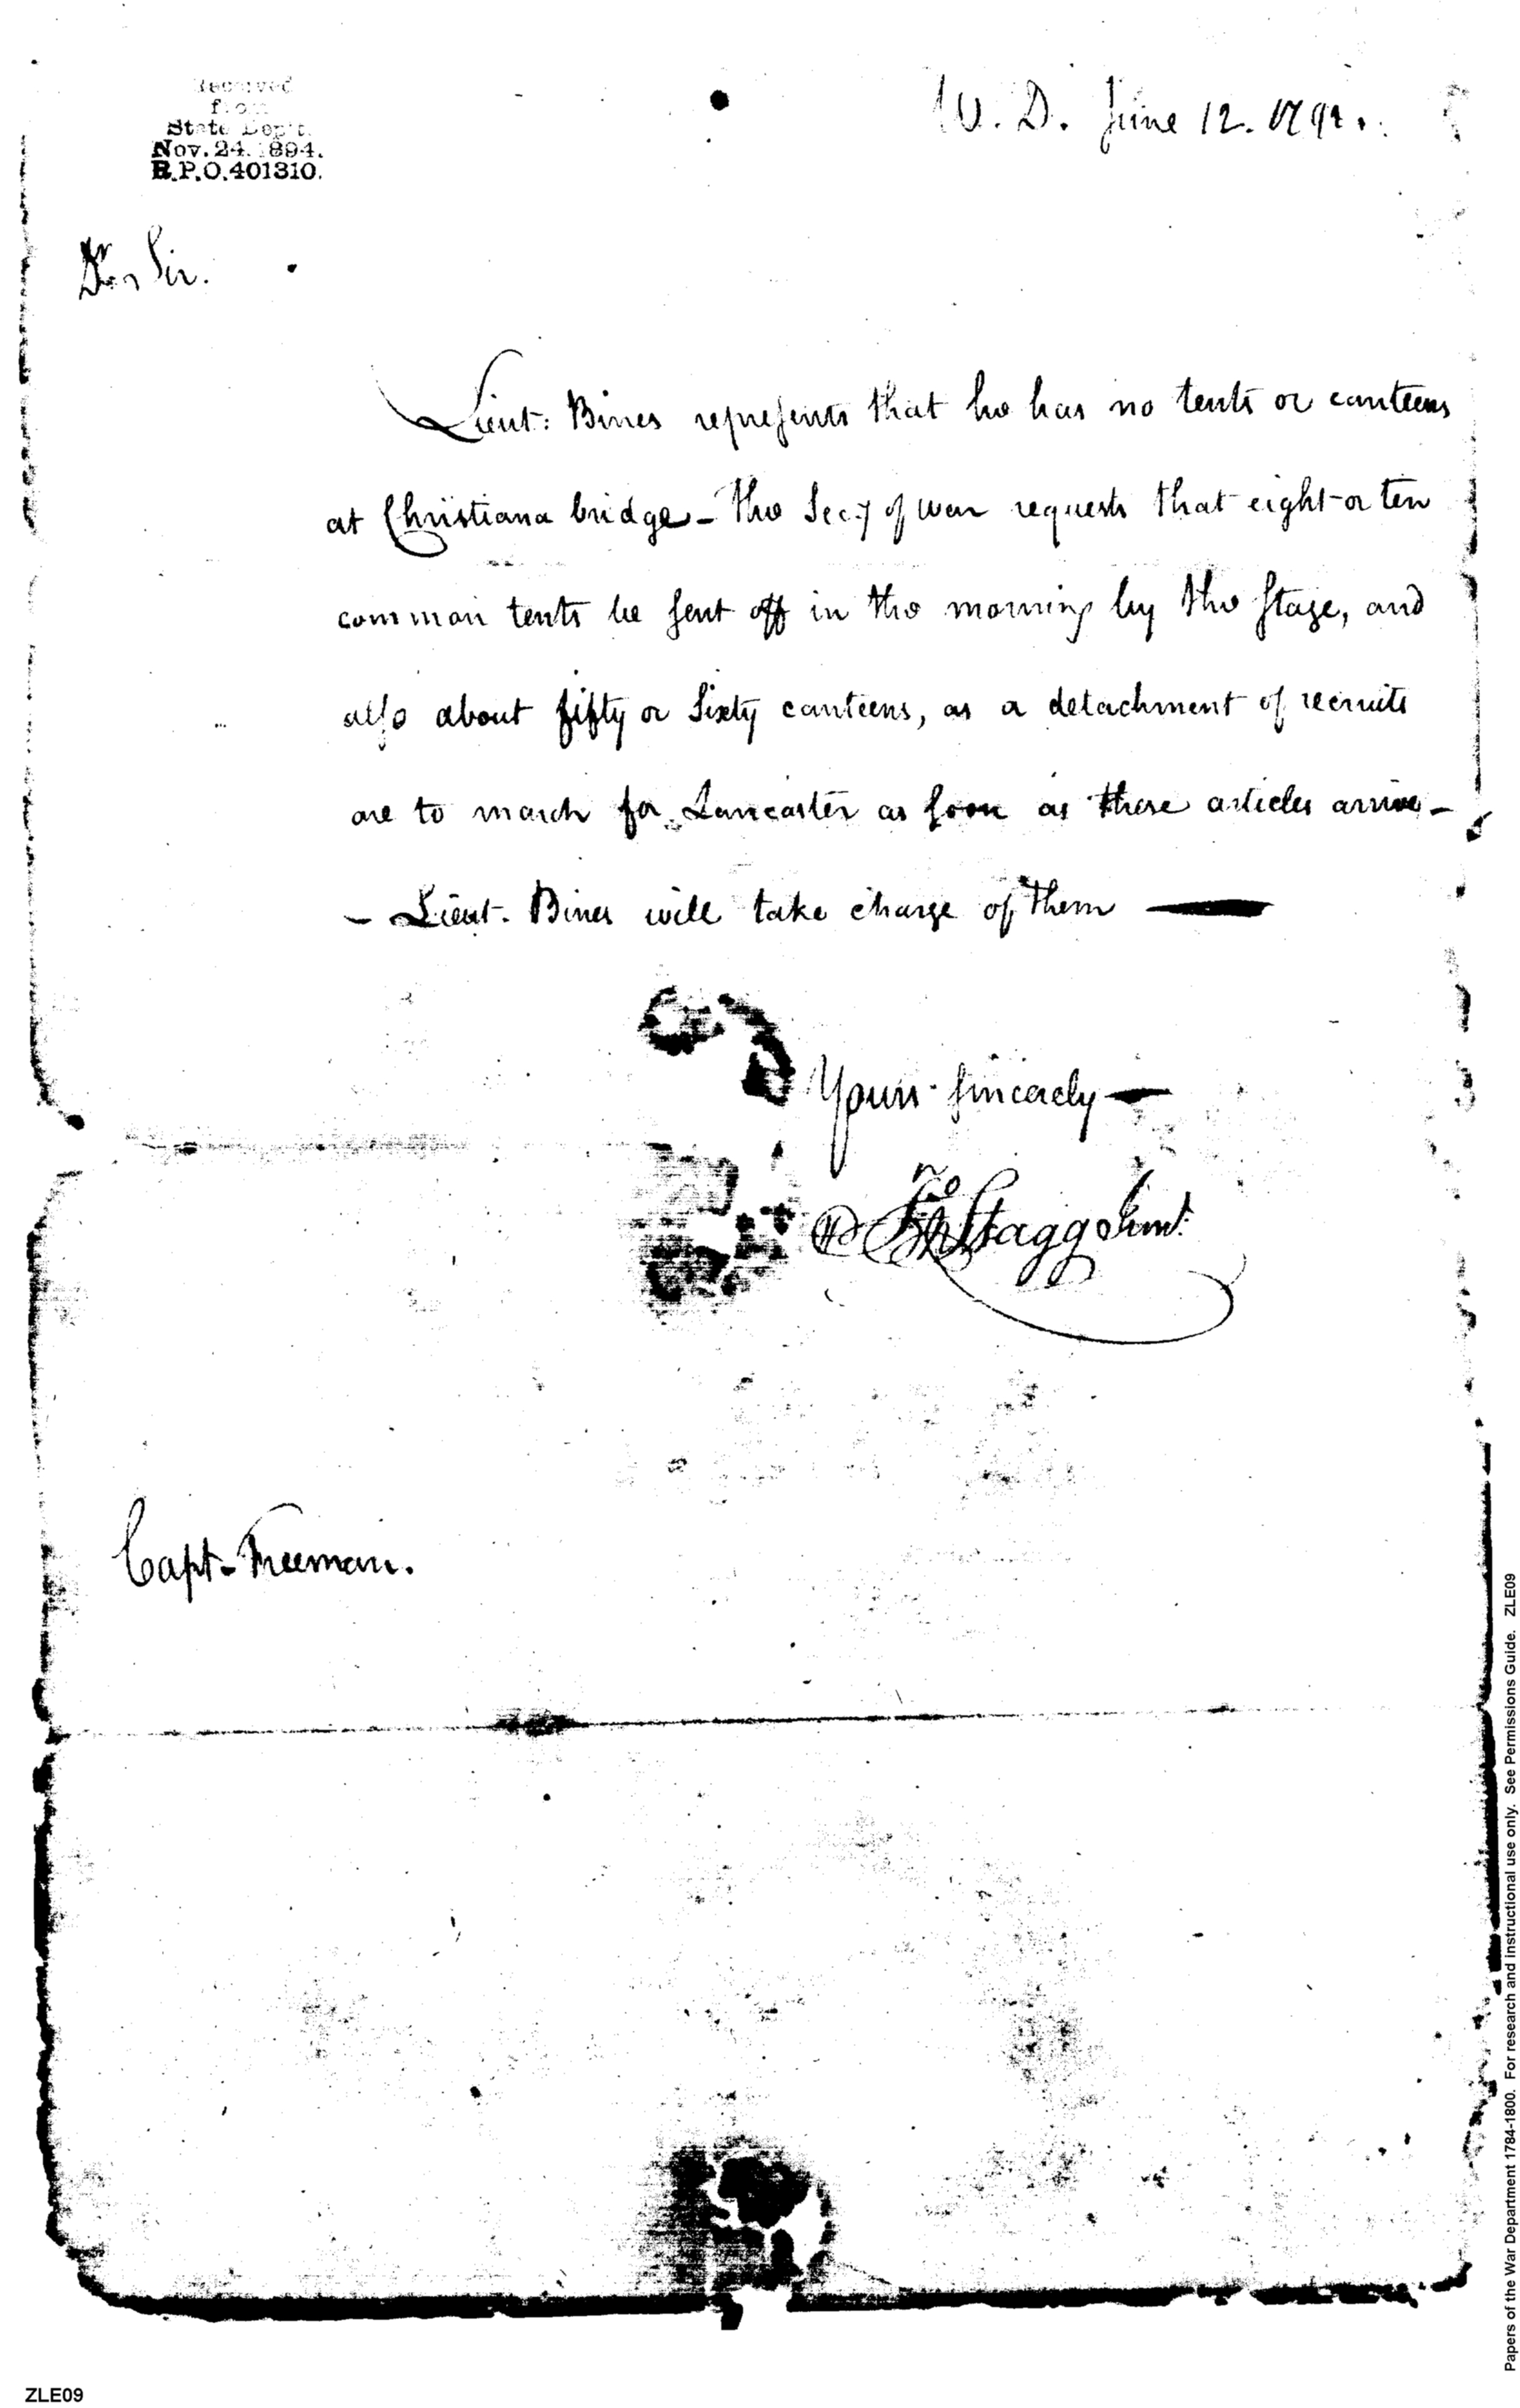 Received
from
State Dep't.
Nov. 24. 1894.
R.P.O. 401310.
W. D. June 12. 1792.
Dr Sir.
Lieut: Bines represents that he has no tents or canteens
at Christiana bridge - The Secy of War requests that eight or ten
common tents be sent off in the morning by the Stage, and
also about fifty or Sixty canteens, as a detachment of recruits
are to march for Lancaster as soon as these articles arrive -
- Lieut. Bines will take charge of them
Yours sincerely
Jno Stagg Junr.
Capt. Freeman.
Papers of the War Department 1784-1800. For research and instructional use only. See Permissions Guide. ZLE09
ZLE09